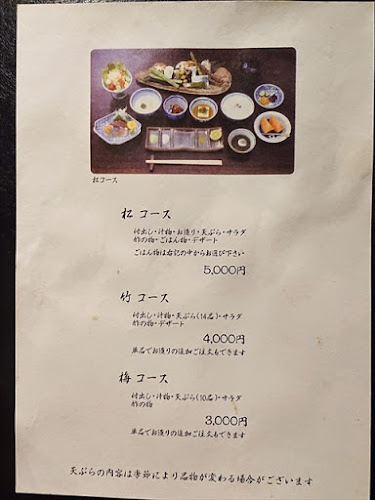 松コース
松 コース
付出し・汁物・お造り・天ぷら・サラダ
酢の物・ごはん物・デザート
ごはん物は右記の中からお選び下さい
5,000円
竹 コース
付出し・汁物・天ぷら(14品)・サラダ
酢の物・デザート
4,000円
単品でお造りの追加ご注文もできます
梅 コース
付出し・汁物・天ぷら(10品)・サラダ
酢の物
3,000円
単品でお造りの追加ご注文もできます
天ぷらの内容は季節により品物が変わる場合がございます